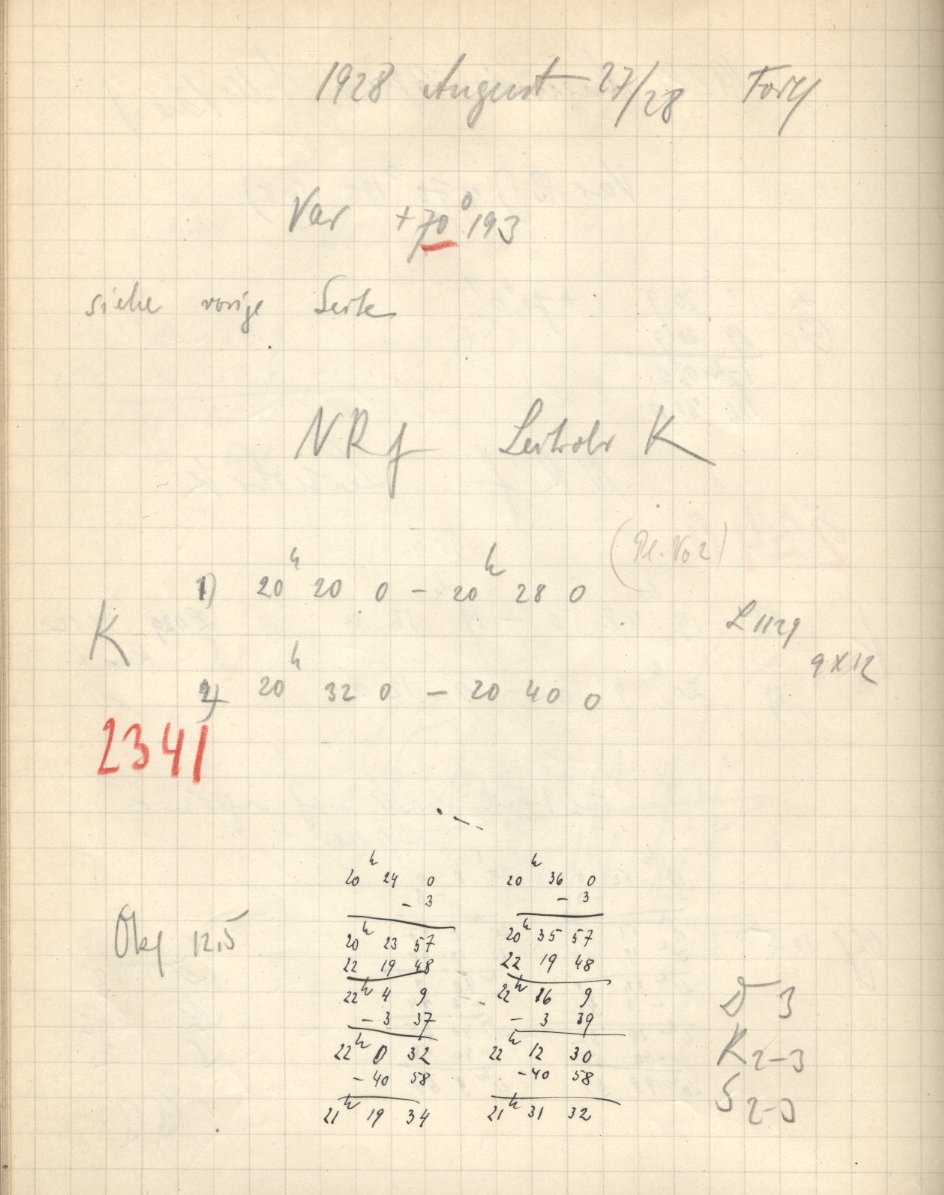 1928 August 27/28
Var +70° 193
siehe vorige Seite
NRf Leitrohr K
(Pl. No 2)
1) 20ʰ 20 0 – 20ʰ 28 0
K
L 1129
9X12
2) 20ʰ 32 0 – 20 40 0
2341
20ʰ 24 0 20ʰ 36 0
– 3 – 3
Okf 12,5
20ʰ 23 57 20ʰ 35 57
22 19 48 22 19 48
22ʰ 4 9 22ʰ 16 9
– 3 37 – 3 39
D 3
22ʰ 0 32 22ʰ 12 30
K 2-3
– 40 58 – 40 58
S 2-3
21ʰ 19 34 21ʰ 31 32